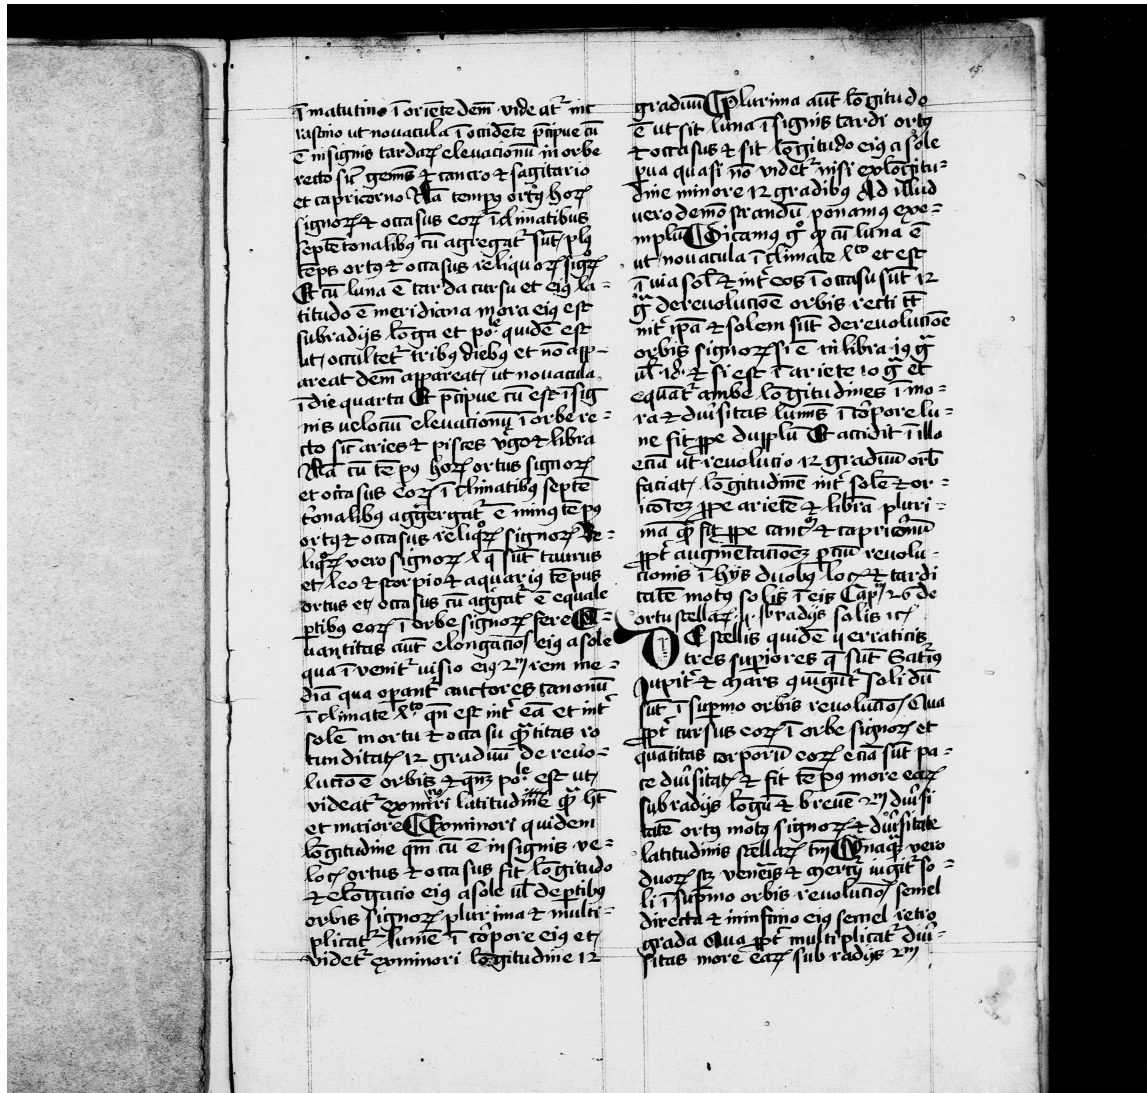 ī matutino ī oriēte dem̄ videatʳ ī nr̄
rastino ut novacula ī occidēte p̄cipue cū
ē in signis tardaꝝ elevacionū in orbe
recto sic̄ gem̄s ⁊ cancro ⁊ sagitario
et capricorno Nā tempꝯ ortꝯ hoꝝ
signoꝝ ⁊ occasus eoꝝ ī climatibus
septētonalibꝯ cū agregatʳ sūt plꝯ
tēps ortꝯ ⁊ occasus reliquoꝝ sigꝝ
Et cū luna ē tarda cursu et eiꝯ la=
titudo ē meridiana mora eiꝯ est
sub radijs lōga et poˡᵉ quidē est
ut occultetʳ tribꝯ diebꝯ et nō app-
areat dem̄ appareat ut novacula
ī die quarta Et p̄cipue cū est ī sig
nis velocū elevacionū ī orbe re=
cto sic̄ aries ⁊ pisces v̓go ⁊ libra
Nā cū tēpꝯ hoꝝ ortus signoꝝ
et occasus eoꝝ ī climatibꝯ septē
t̓onalibꝯ aggergatʳ ē minꝯ tēpꝯ
ortꝯ ⁊ occasus reliq̊ꝝ signoꝝ Re=
liq̊ꝝ vero signoꝝ q̄ sūt taurus
et leo ⁊ scorpio ⁊ aquariꝯ tēpus
ortus et occasus cū ag̓gatʳ ē equale
ꝑtibꝯ eoꝝ ī orbe signoꝝ fere Q=
uantitas aut̄ elongac̄ōis eiꝯ a sole
qua īvenitʳ visio eiꝯ 2m̄ rem me=
diā qua operantʳ auctores canonū
ī climate 4ᵗᵒ qn̄ est int̓ eā et int̓
solē in ortu ⁊ occasu q̄ntitas ro
tunditatꝭ 12 graduū de revo=
lucioē orbis ⁊ qn̄qꝫ poˡᵉ est ut
videatʳ ex minori latitudine qᵃ h̄t
et maiore Ex minori quidem
lōgitudine qm̄ cū ē in signis ve=
locꝭ ortus ⁊ occasus fit lōgitudo
⁊ elōgacio eiꝯ a sole ul̄ de ꝑtibꝯ
orbis signoꝝ plurima ⁊ multi=
plicatʳ lumē ī cor̄pore eiꝯ et
videtʳ ex minori lōgitudine 12
graduū Plurima aut̄ lōgitudo
ē ut sit luna ī signis tardi ortꝯ
⁊ occasus ⁊ sit lōgitudo eiꝯ a sole
pua quasi nō videtʳ nisi ex lōgitu=
dine minore 12 gradibꝯ Ad illud
vero demōstrandū ponamꝯ exe=
mplū Dicamꝯ g̊ ꝙ cū luna ē
ut novacula ī climate 4ᵗᵒ et est
ī via sol̄ ⁊ int̓ eos ī occasu sūt 12
gᵃ de revolucioē orbis recti tc̄
int̓ ip̄ā ⁊ solem sūt de revolucioē
orbis signoꝝ si ē in libra 19 gᵃ
ul̄ id̄ ⁊ si est ī ariete 10 gᵃ et
equātʳ ambe lōgitudines ī mo=
ra ⁊ div̓sitas lum̄is ī cor̄pore lu=
ne fit ꝓpe dupplū Et accidit ī illo
eciā ut revolucio 12 graduū orb̄
faciat lōgitudinē int̓ solē ⁊ or=
icōteꝫ ꝓpe arietē ⁊ librā pluri=
mā ꝙ fit ꝓpe canc̓ ⁊ capricornū
ꝓpt̓ augmētacioēꝫ ꝑciū revolu=
cionis ī hijs duobꝯ locꝭ ⁊ tardi
tatē motꝯ solis ī eis Capᵐ 26 de
ortu stellaꝝ 7 sb̄ radijs solis ⁊cꝭ
DE stellis quidē erraticis
tres superiores q̄ sūt Satʳnꝯ
Jupit̓ ⁊ Mars iūgūtʳ soli dū
sūt ī sup̄mo orbis revolucioꝭ Qua
ꝓpt̓ cursus eoꝝ ī orbe signoꝝ et
quātitas corporū eoꝝ eciā sūt pa=
ce div̓sitatꝭ ⁊ fit tēpꝯ more eaꝝ
sub radijs lōgū ⁊ brevē 2m̄ div̓si
tatē ortꝯ motꝯ signoꝝ ⁊ div̓sitate
latitudinis stellaꝝ tm̄ Unaqᵃꝫ vero
duoꝝ sꝫ ven̄eis ⁊ mercʳij iūgitʳ so=
li ī sup̄mo orbis revolucioꝭ semel
directa ⁊ in infimo eiꝯ semel retro
grada Qua ꝓpt̓ multiplicatʳ div̓=
sitas more eaꝝ sub radijs 2m̄